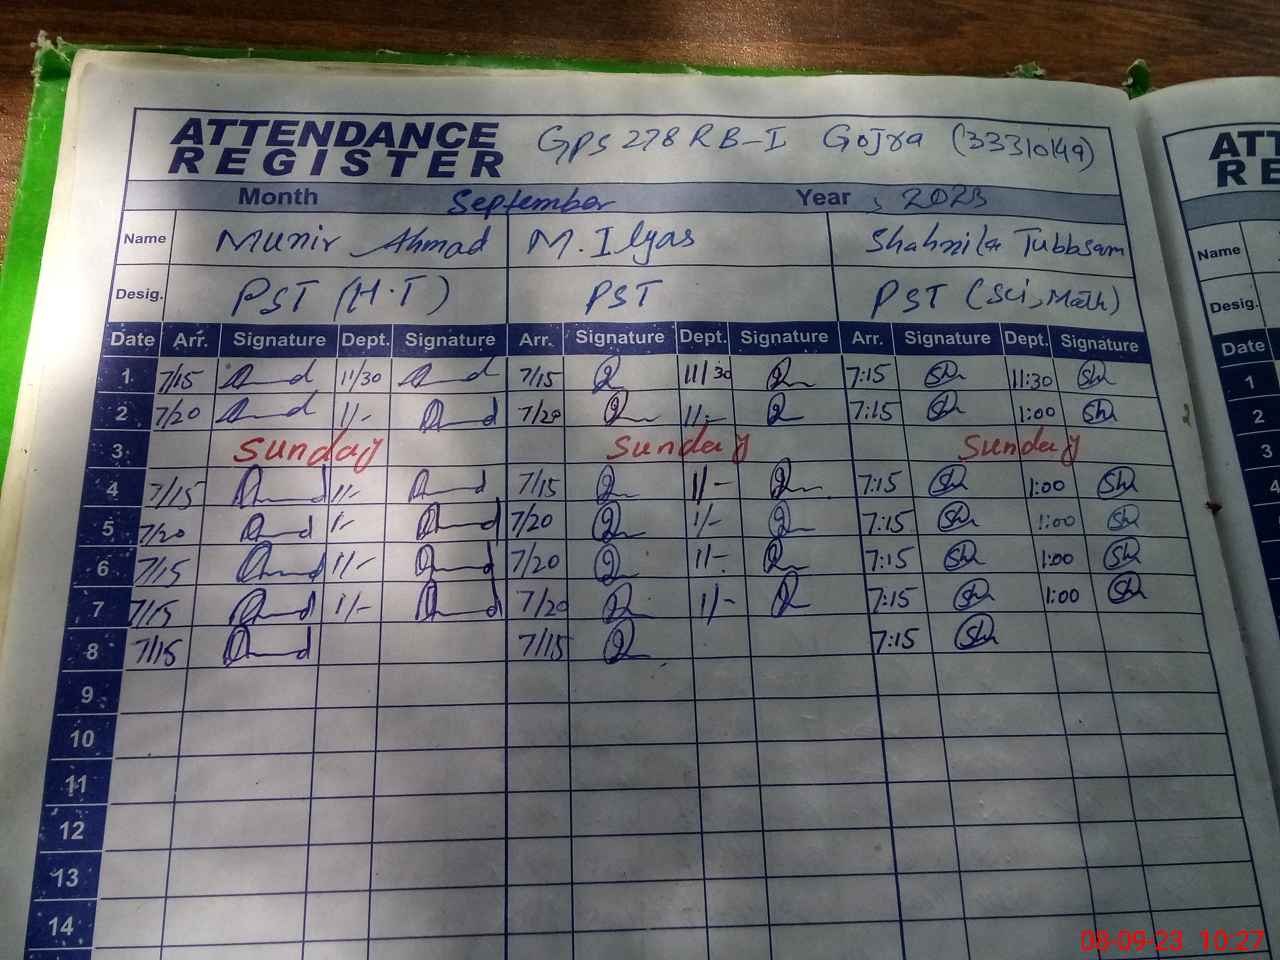 ATTENDANCE REGISTER GPS 278 RB-I Gojra (33310149)
Month September Year 2023
Name Munir Ahmad M. Ilyas Shahnila Tubbsam
Desig. PST (H.T) PST PST (Sci, Math)
Date Arr. Signature Dept. Signature Arr. Signature Dept. Signature Arr. Signature Dept. Signature
1 7/15 11/30 7/15 11/30 7:15 Sh 11:30 Sh
2 7/20 1/- 7/20 1/- 7:15 Sh 1:00 Sh
3 Sunday Sunday Sunday
4 7/15 1/- 7/15 1/- 7:15 Sh 1:00 Sh
5 7/20 1/- 7/20 1/- 7:15 Sh 1:00 Sh
6 7/15 1/- 7/20 1/- 7:15 Sh 1:00 Sh
7 7/15 1/- 7/20 1/- 7:15 Sh 1:00 Sh
8 7/15 7/15 7:15 Sh
9
10
11
12
13
14
ATT
RE
Name
Desig.
Date
1
2
3
4
08-09-23 10:27